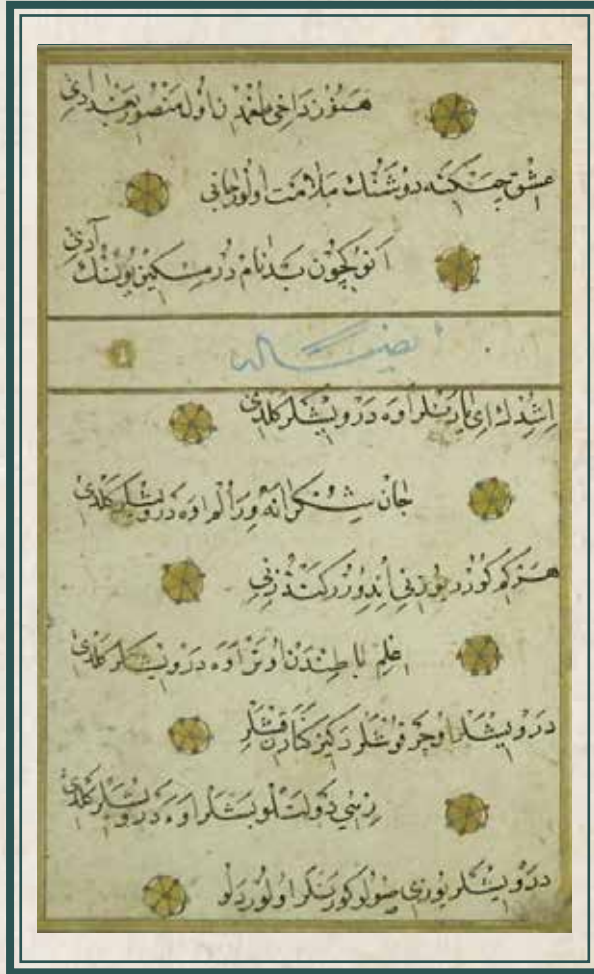 هنوز داخی طغمدن اول منصور بغدادی
عشق دوشنك ملامت اولور جانی
انوكچون بدنام در مسكین یونسك آدی
اشدك ای یارنلر اوه درویشلر كلدی
جان شكرانه ویرالم اوه درویشلر كلدی
هر كم كورر یوزنی اندورر كندزنی
علم باطندن اوتر اوه درویشلر كلدی
درویشلر اوچر قوشلر دكز كنارن قشلر
زهی دولتلو بشلر اوه درویشلر كلدی
درویشلر یوزی صولو كورنلر اولور دلو